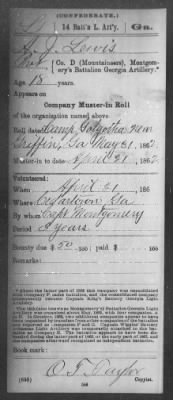 (CONFEDERATE.)
L 14 Batt'n L. Art'y. Ga.
A. J. Lewis
Pvt, Co. D (Mountaineers), Montgomery's Battalion Georgia Artillery.*
Age 18 years.
Appears on
Company Muster-in Roll
of the organization named above,
Roll dated Camp Golgotha near
Griffin, Ga May 21, 1862.
Muster-in to date April 21, 1862.
Volunteered:
When April 21, 186
Where Cedartown, Ga
By whom Capt Montgomery
Period 3 years
Bounty due $50 100; paid $ 100
Remarks:
Book mark:
O. T. Taylor
(656) Copyist.